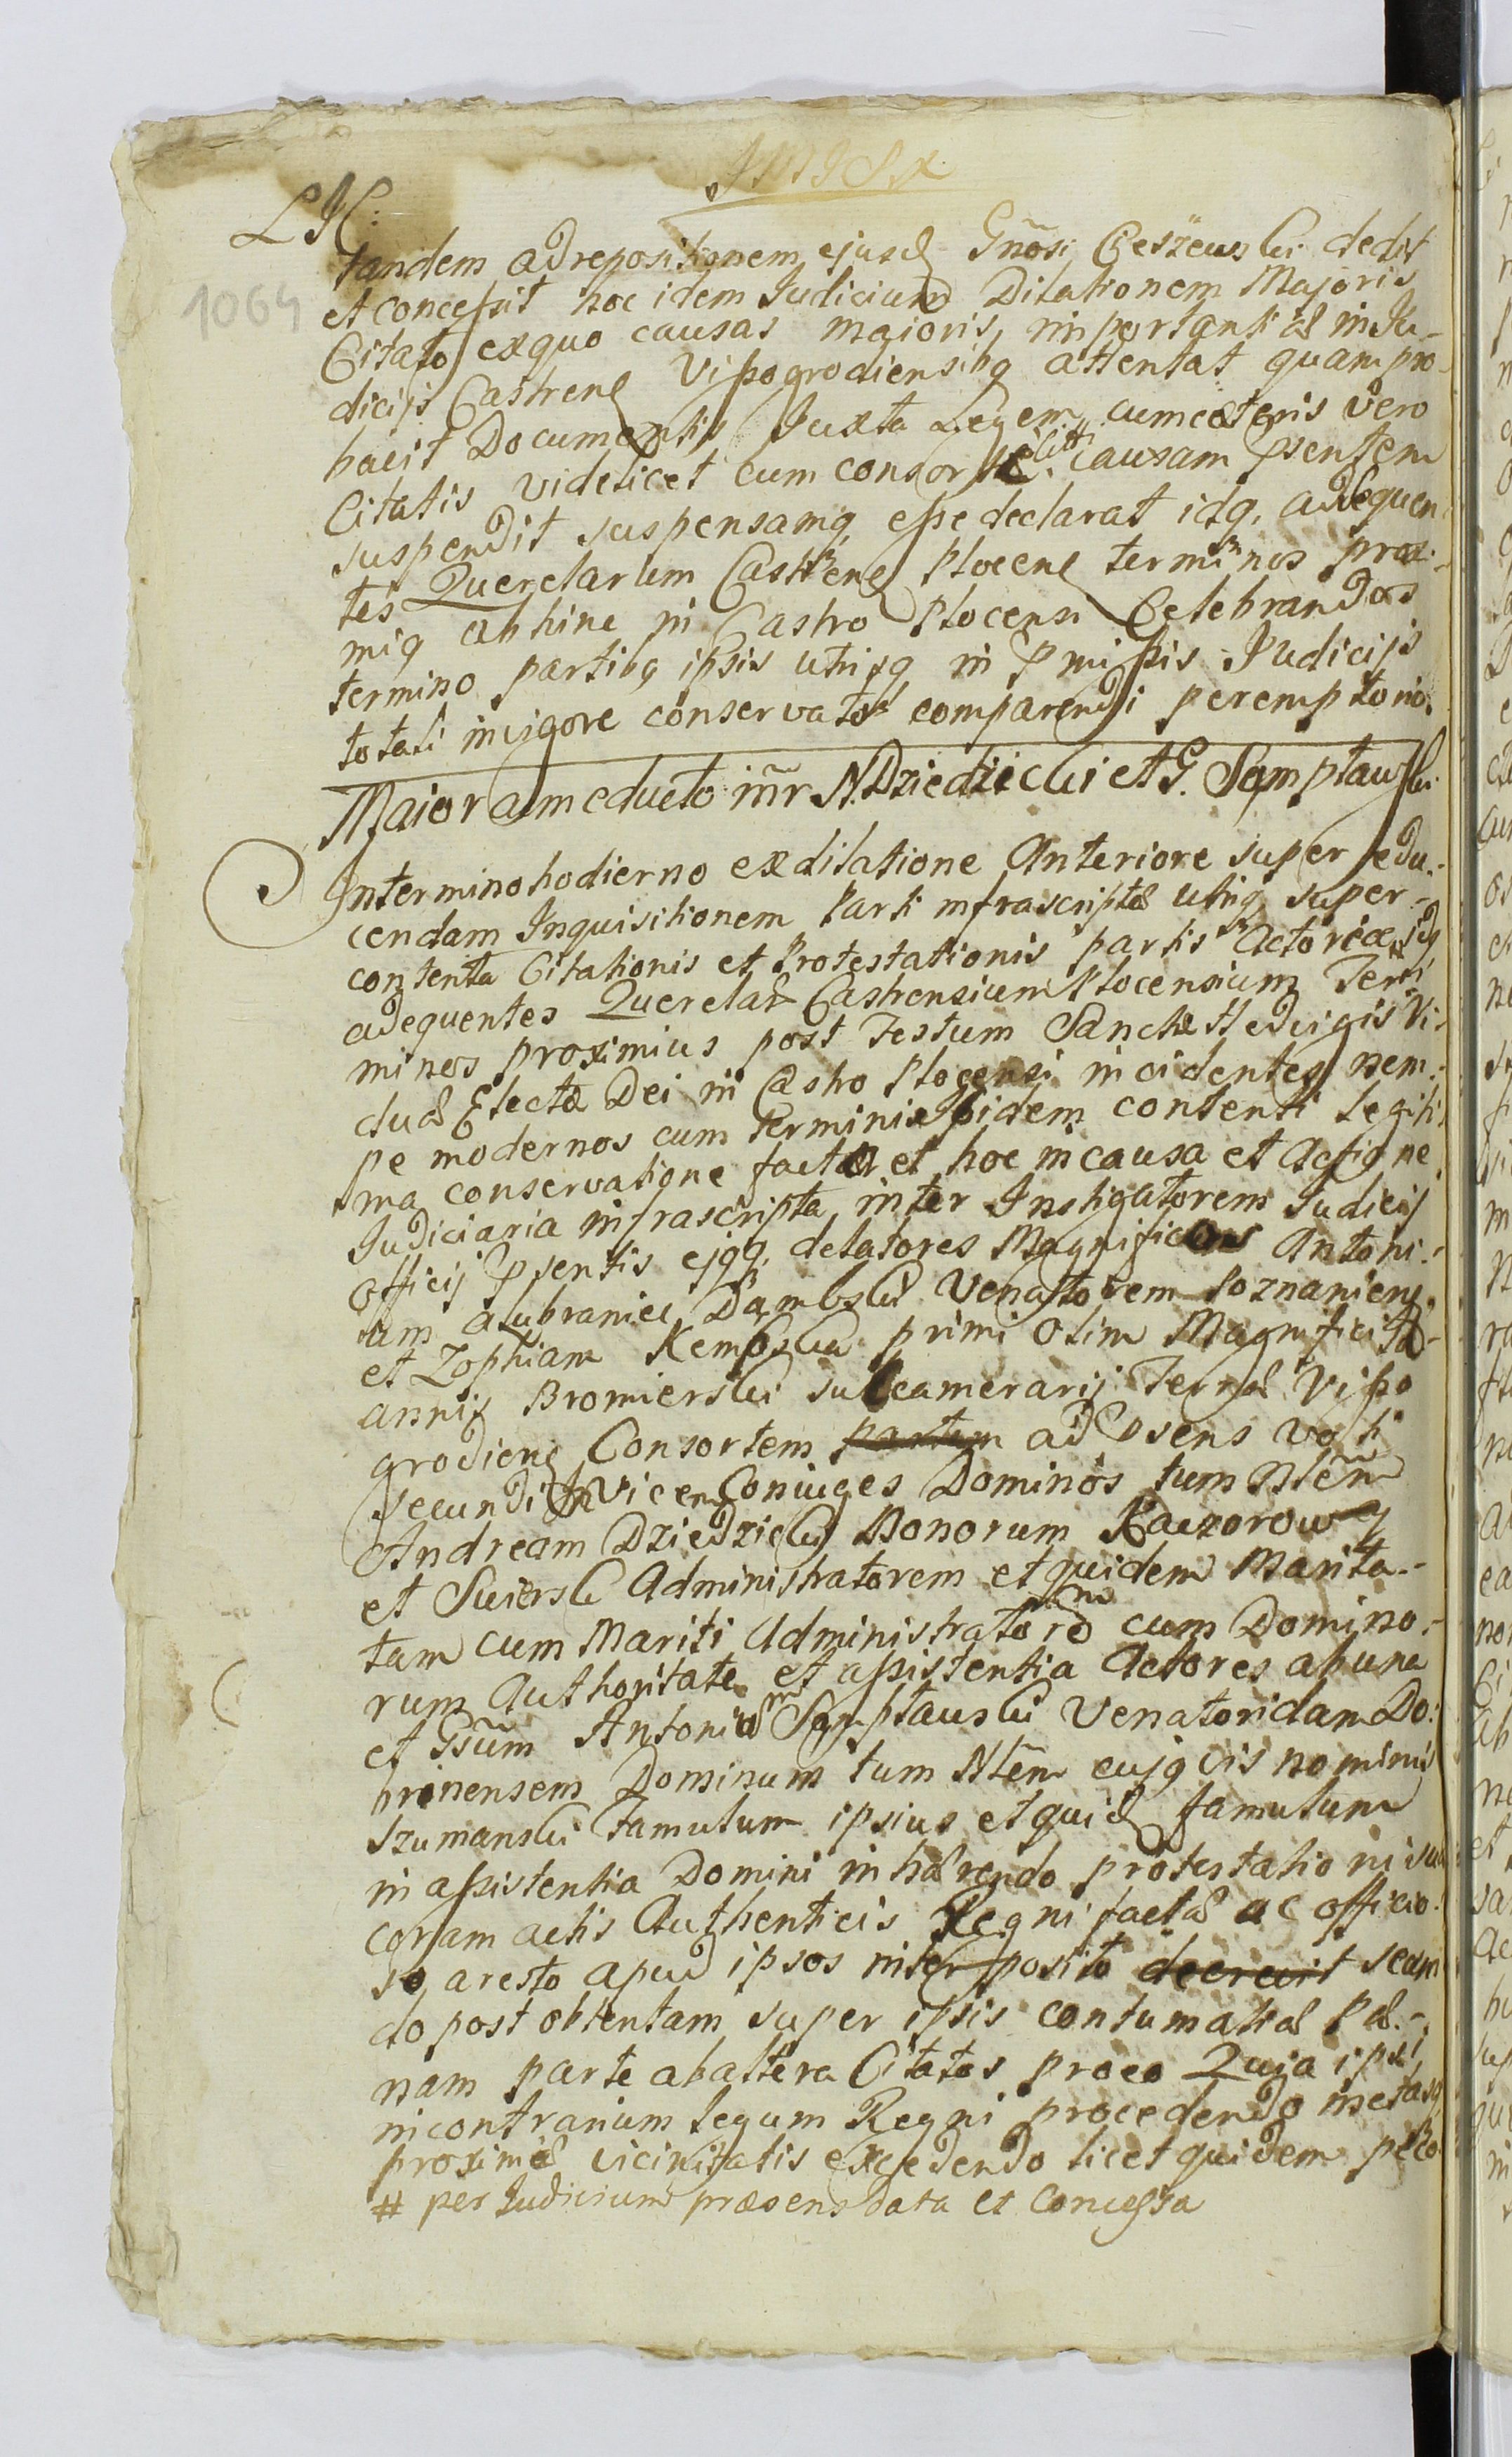 1064
tandem ad repositionem ejusd Gnosi Cieszewski dedit
et concessit hoc idem Judicium Dilationem Majoris
Citato exquo causas majoris importantiæ in Ju-
dicijs Castren Vissogrodiensibq attentat quam pro-
bavit Documentis Juxta Legem cum cæteris vero
Citatis videlicet cum consorte causam Psentem
suspendit suspensamq esse declarat idq. ad sequen
tes Querelarum Castren Plocen terminos proxi-
miq abhinc in Castro Plocensi Celebrandos
termino partibq ipsis utrisq in Pmissis Judicijs
totali in vigore conservato comparendi peremptorio.
Maior a me educto intr N. Dziedzicki et G. Sumptawski
In termino hodierno ex dilatione Anteriore super edu-
cendam Inquisitionem Parti infrascriptæ utriq super
contenta Citationis et Protestationis partis Actoreæ # idq
ad sequentes Querelar Castrensium Plocensium Ter-
minos proximius post Festum Sanctæ Hedvigis Vi-
duæ Electæ Dei in Castro Plocensi incidentes nem-
pe modernos cum terminis ibidem contenti legiti
ma conservatione facta et hoc in causa et Actione
Judiciaria infrascripta inter Instigatorem Judicij
Officij Psentis ejqq delatores Magnificos Antoni-
um a Lubraniec Dąmbski Venatorem Poznaniens.
et Zophiam Kempska primi olim Magnifici Jo-
annis Bromierski Succamerarij Terræ Visso
grodiens Consortem partem ad Psens voti
secundi Invicem Coniuges Dominos tum Nlem
Andream Dziedzicki Bonorum Kaczorowy
et Swiersk Administratorem et quidem Marita-
tam cum Mariti Administratorem cum Domino-
rum Authoritate et assistentia Actores ab una
et Gsum Antonium Sumptawski Venatoridam Do-
brinensem Dominum tum Nlem cujqvis nominis
Szumanski Famulum ipsius et quid famulum
in assistentia Domini inhærendo protestationi suæ
coram actis Authenticis Regni factæ ac officio-
so aresto apud ipsos interposito decrevit secun
do post obtentam super ipsis contumatiæ Pæ-
nam parte ab altera Citatos pro eo Quia ipsi
in contrarium legum Regni procedendo metasq
proximæ vicinitatis excedendo licet quidem
# per Judicium præsens data et Concessa